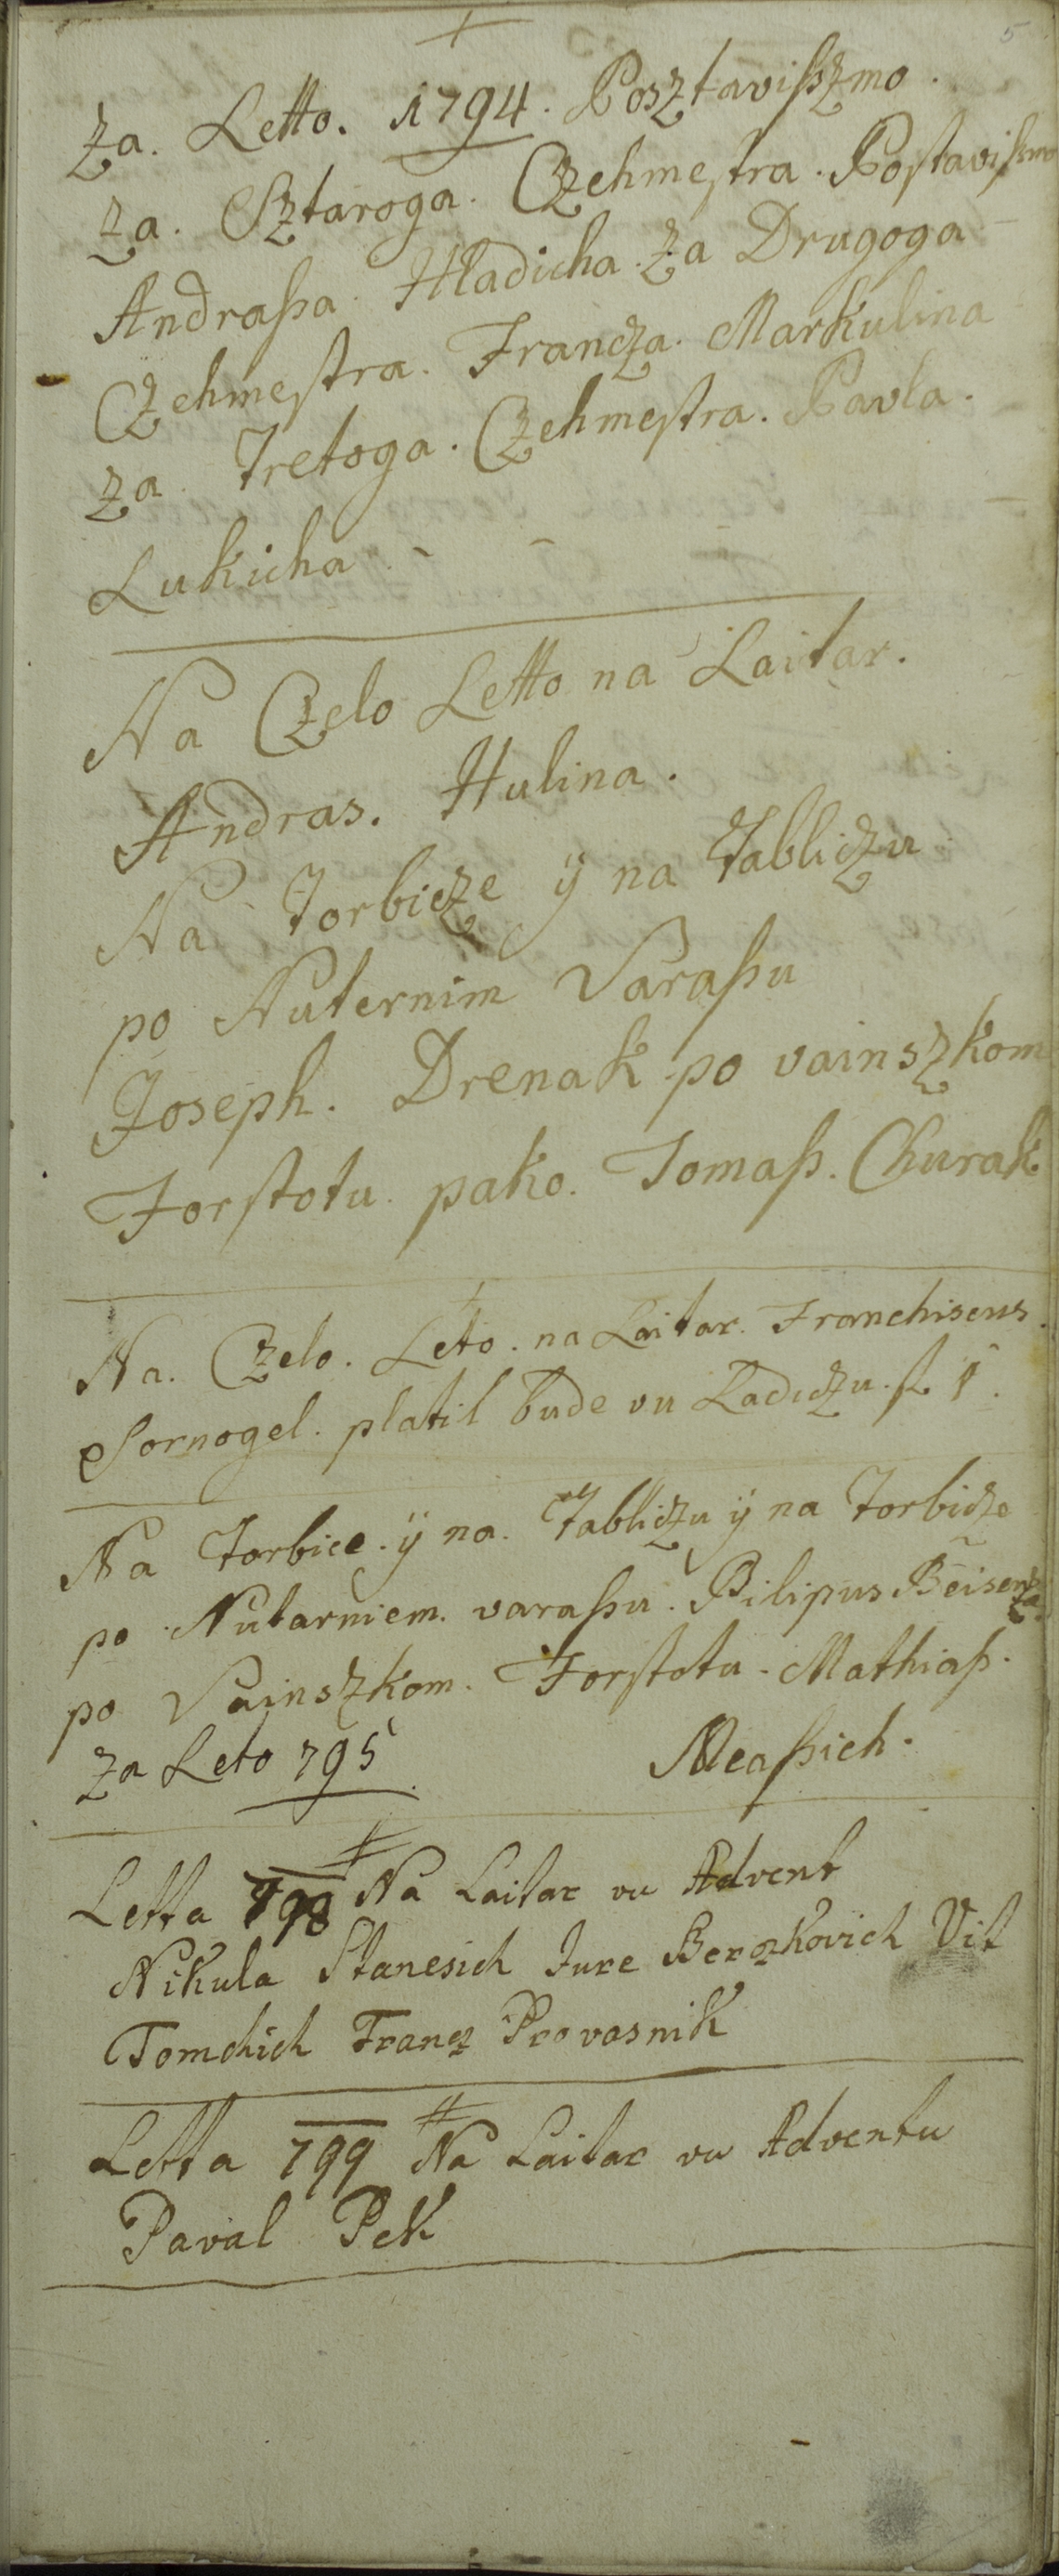 5
Za. Letto. 1794. Posztavißzmo.
za. Sztaroga. Czehmestra. Postavißmo
Andraßa. Hladicha. za Drugoga
Czehmestra. Francza. Markulina
za Tretoga. Czehmestra. Pavla.
Lukicha
Na Czelo Letto na Laitar.
Andras. Hulina.
Na Torbicze ÿ na Tabliczu
po Nuternim Varaßu
Joseph. Drenak po vainszkom
Forstotu. pako. Tomaß. Churak
Na. Czelo. Leto. na Laitar. Franchiscus.
Sornogel. platil bude vu Ladiczu. fl 1.
Na Torbice. ÿ na. Tabliczu ÿ na Torbicze
po Nutarniem. varaßu. Pilipus
po Vainszkom. Forstotu. Mathiaß.
Za Leto 795 Meaßich.
Letta 798 Na Laitar vu Advent
Nikula Stanesich Jure Berozkovich Vit
Tomchich Francz Provasnik
Letta 799 Na Laitar vu Adventu
Paval Pek